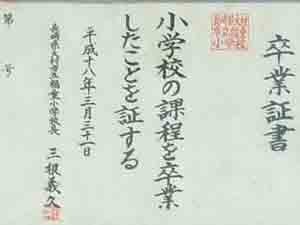 卒業証書
小学校の課程を卒業
したことを証する
平成十八年三月三十一日
長崎県大村市立福重小学校長 三根義久
第 号